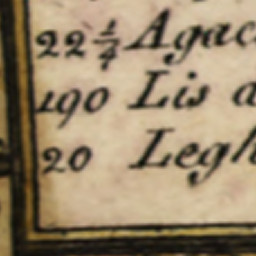 22 1/4 Agac
190 Lis a
20 Legh